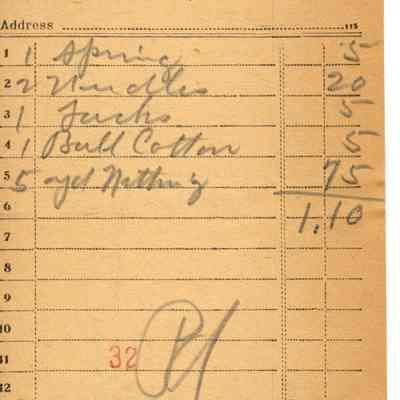 Address
1 1 Spring 5
2 2 Needles 20
3 1 Jacks 5
4 1 Ball Cotton 5
5 5 yd Netting 75
6 1.10
7
8
9
10
11 32
12